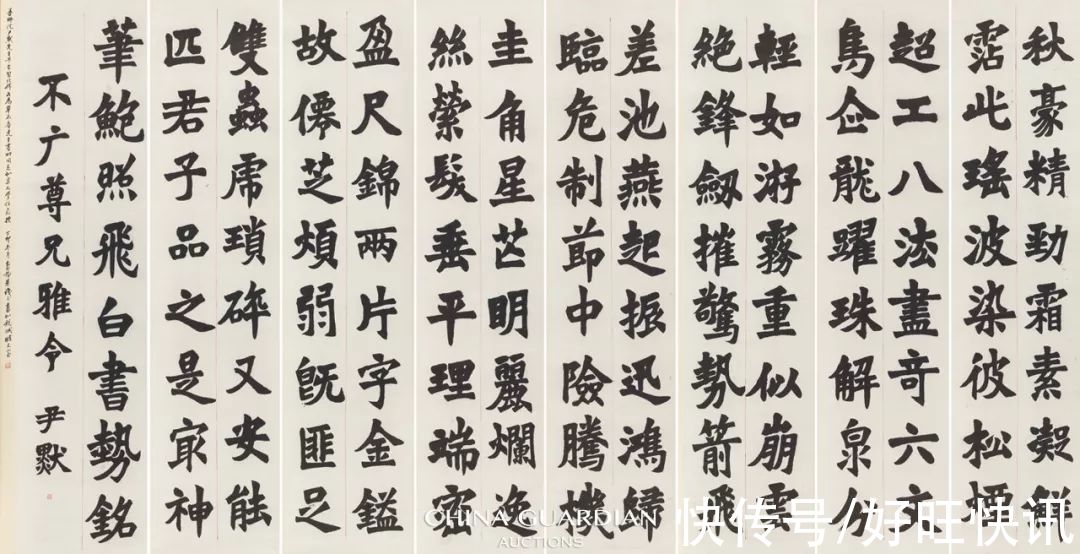 秋豪精勁霜素凝鮮
霑此瑤波染彼松煙
超工八法盡奇六文
鳥企龍躍珠解泉分
輕如游霧重似崩雲
絕鋒劒摧驚勢箭飛
差池燕起振迅鴻歸
臨危制節中險騰機
圭角星芒明麗爛逸
絲縈髮垂平理端密
盈尺錦兩片字金鎰
故僊芝煩弱旣匪足
雙蟲虎瑣碎又安能
匹君子品之是冣神
筆鮑照飛白書勢銘
不广尊兄雅令 尹默
CHINA GUARDIAN
AUCTIONS
快传号/好旺快讯